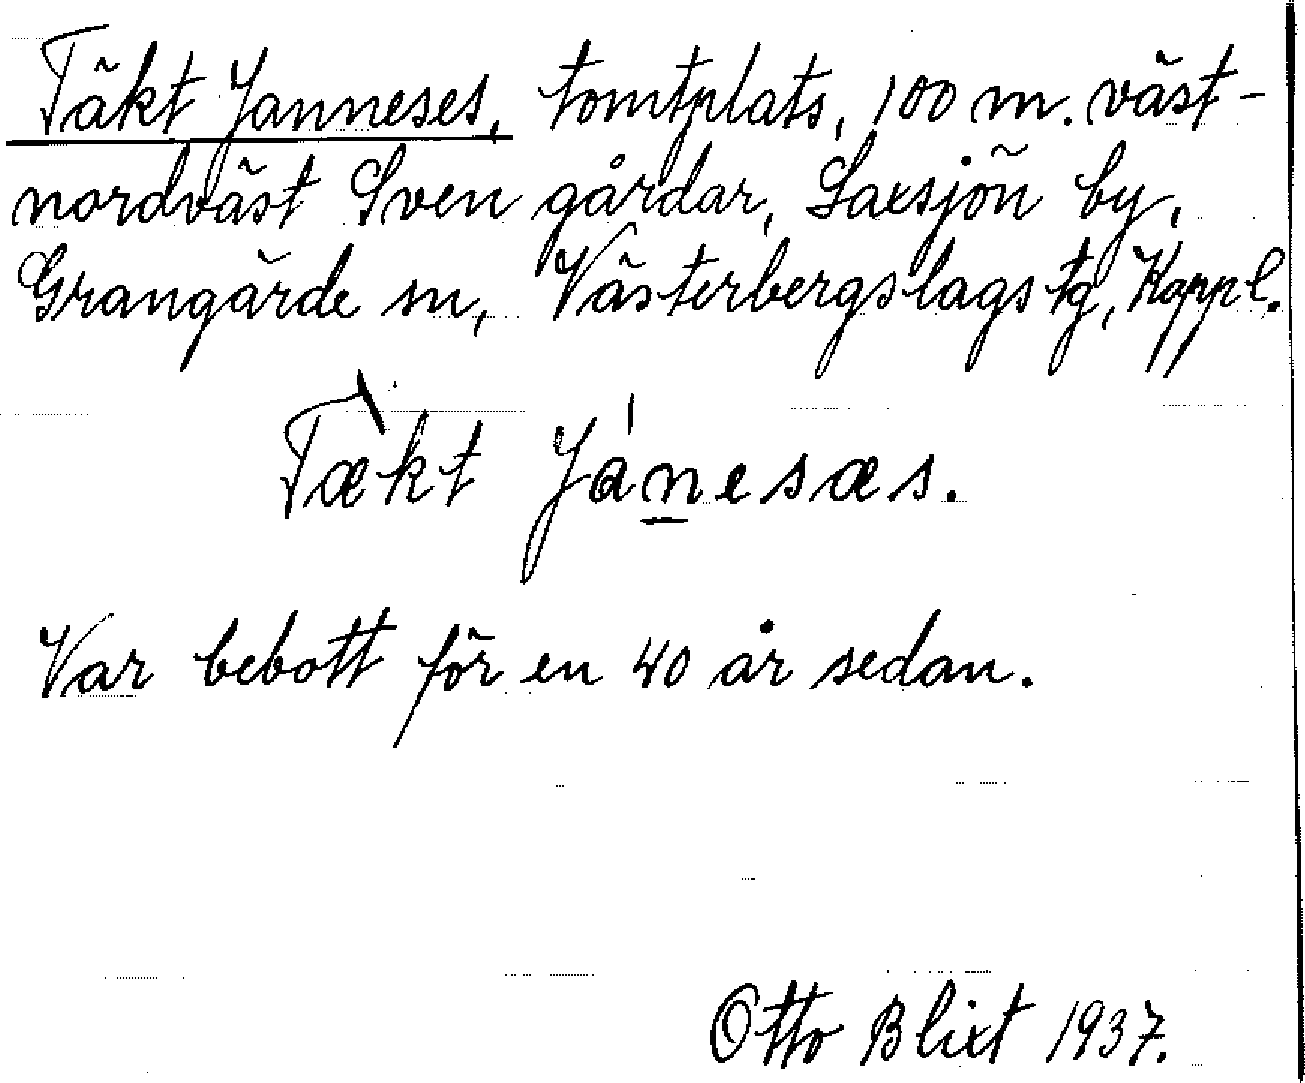 Täkt Janneses, tomtplats, 100 m. väst-
nordväst Sven gårdar, Saxsjön by,
Grangärde sn, Västerbergslags tg, Koppl.
Tækt Jánesæs.
Var bebott för en 40 år sedan.
Otto Blixt 1937.